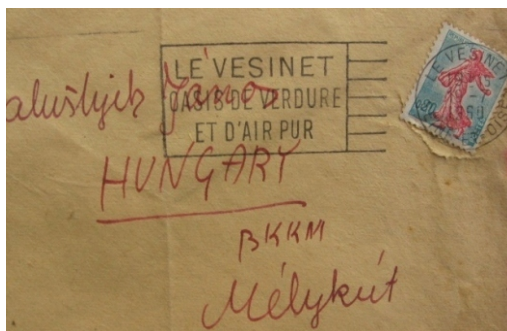 LE VESINET
OASIS DE VERDURE
ET D'AIR PUR
LE VESINET
János
HUNGARY
BKKM
Mélykút